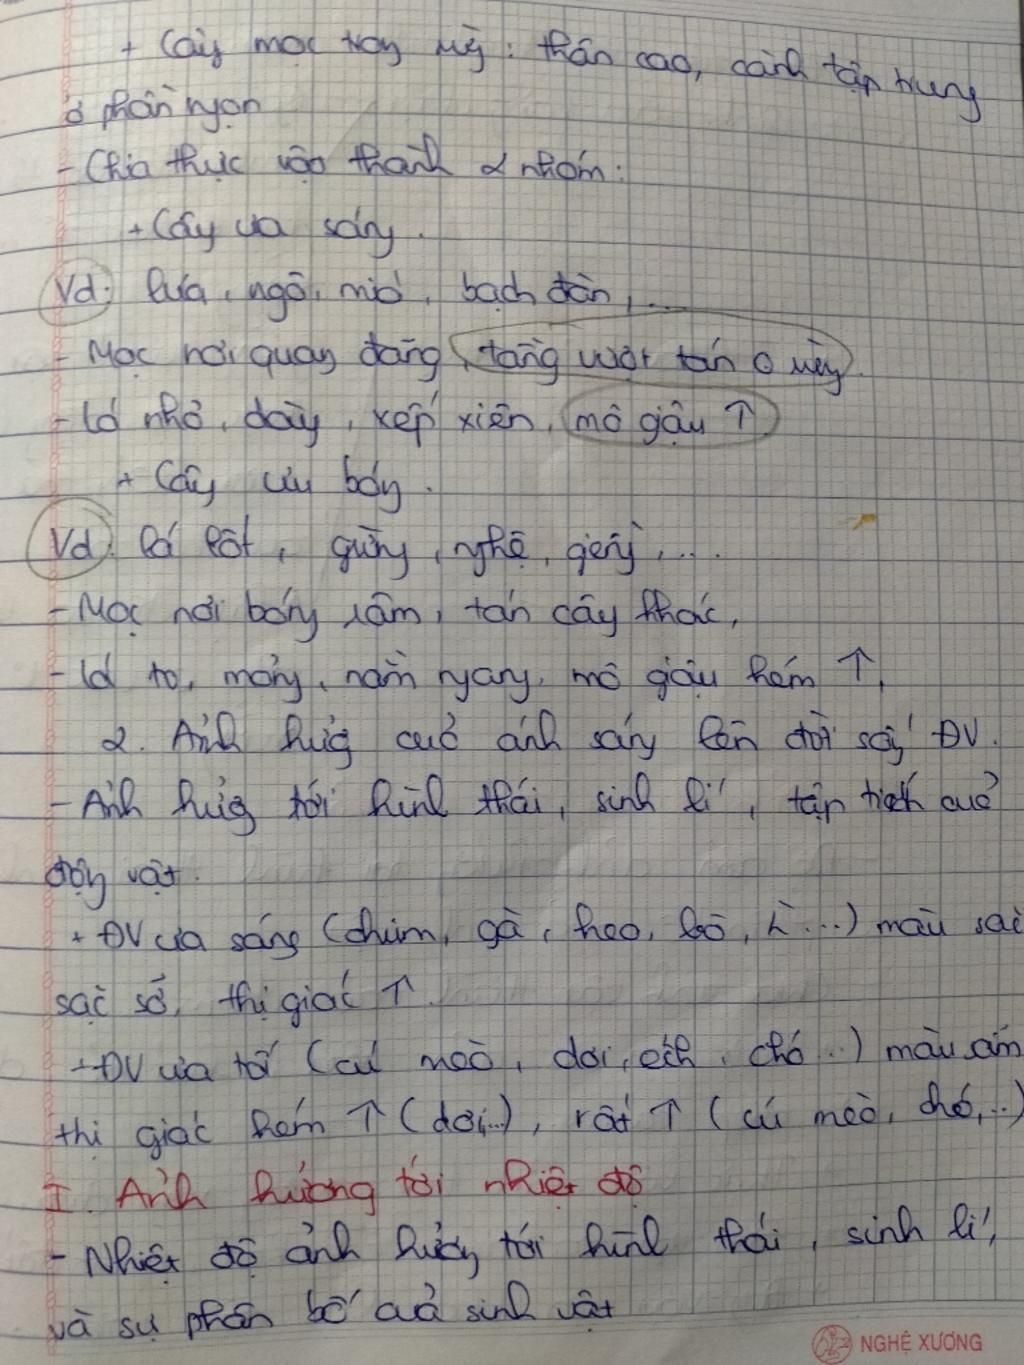 + Cây mọc trong rừng: thân cao, cành tập trung
ở phần ngọn
- Chia thực vật thành 2 nhóm:
+ Cây ưa sáng.
Vd: lúa, ngô, mía, bạch đàn,...
- Mọc nơi quang đãng, tầng vượt tán ở rừng.
- Lá nhỏ, dày, xếp xiên, mô giậu ↑
+ Cây ưu bóng.
Vd: lá lốt, gừng, nghệ, giềng,...
- Mọc nơi bóng râm, tán cây khác,
- Lá to, mỏng, nằm ngang, mô giậu kém ↑,
2. Ảnh hưởng của ánh sáng lên đời sống ĐV.
- Ảnh hưởng tới hình thái, sinh lí, tập tính của
động vật.
+ ĐV ưa sáng (chim, gà, heo, bò, ...) màu sắc
sặc sỡ, thị giác ↑
+ ĐV ưa tối (cú mèo, dơi, ếch, chó...) màu sẫm
thị giác kém ↑ (dơi,...), rất ↑ (cú mèo, chó,...)
I. Ảnh hưởng tới nhiệt độ
- Nhiệt độ ảnh hưởng tới hình thái, sinh lí,
và sự phân bố của sinh vật
NGHỆ XƯƠNG